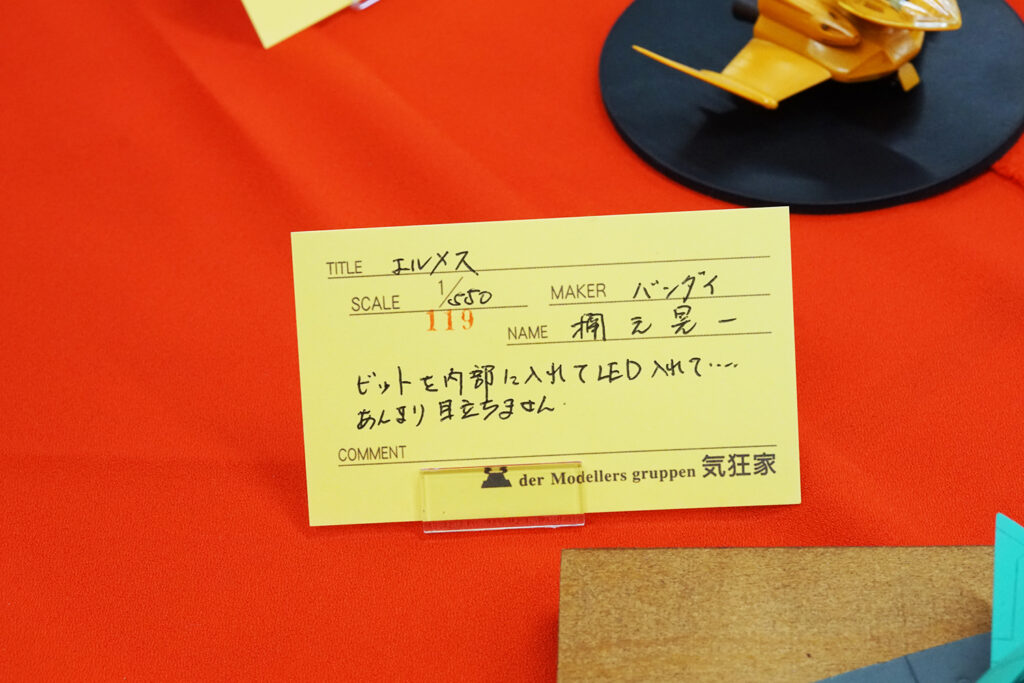 TITLE エルメス
SCALE 1/550 MAKER バンダイ
119
NAME 楠元晃一
ビットを内部に入れてLED入れて‥‥
あんまり目立ちません.
COMMENT
der Modellers gruppen 気狂家